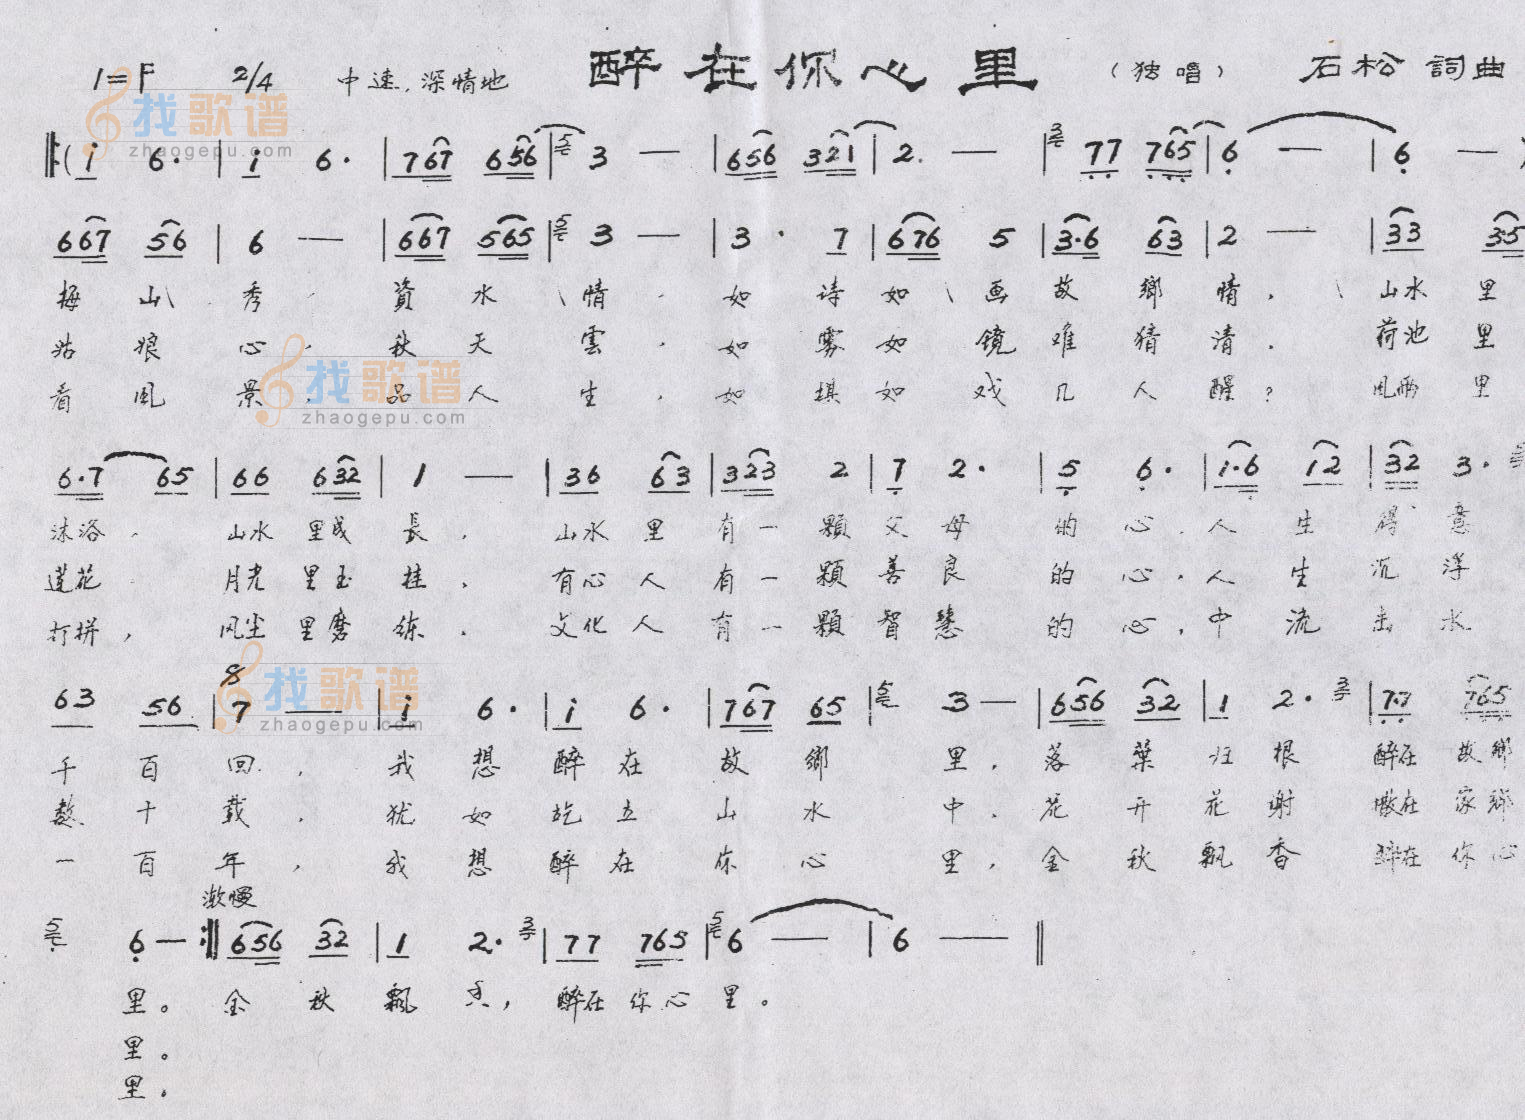 1=F 2/4 中速,深情地 醉在你心里 (独唱) 石松 詞曲
找歌谱
zhaogepu.com
‖:( i 6· | i 6· | 767 656 | 3 — | 656 321 | 2. — | 77 765 | 6 — | 6 — )
667 56 | 6 — | 667 565 | 3 — | 3 · 7 | 676 5 | 3·6 63 | 2 — | 33 35
梅山秀,資水情,如诗如画故鄉情,山水里
姑娘心,秋天雲,如雾如镜难猜清,荷池里
看風景,品人生,如棋如戏几人醒?风雨里
找歌谱
zhaogepu.com
6·7 65 | 66 632 | 1 — | 36 63 | 323 2 | 7 2· | 5 6· | 1·6 12 | 32 3·
沐浴,山水里成長,山水里有一顆父母的心,人生得意
莲花 月光里玉桂,有心人有一顆善良的心,人生沉浮
打拼,风尘里磨练,文化人有一顆智慧的心,中流击水
63 56 | 7 — | i 6· | i 6· | 767 65 | 3 — | 656 32 | 1 2· | 77 765
找歌谱
zhaogepu.com
千百回,我想醉在故鄉里,落葉归根 醉在故鄉
数十载,犹如屹立山水中,花开花谢 撒在家鄉
一百年,我想醉在你心里,金秋飘香 醉在你心
渐慢
6 — :‖ 656 32 | 1 2· | 77 765 | 6 — | 6 — ‖
里。金秋飘香,醉在你心里。
里。
里。